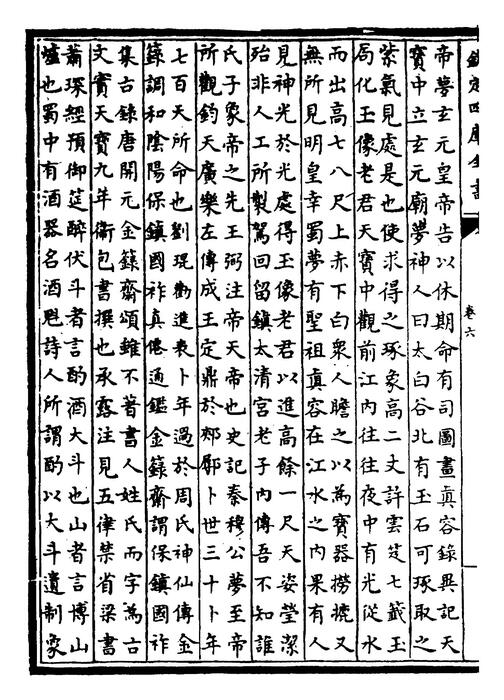 欽定四庫全書
卷六
帝夢玄元皇帝告以休期命有司圖畫真容錄異記天
寶中立玄元廟夢神人曰太白谷北有玉石可琢取之
紫氣見處是也使求得之琢象高二丈許雲笈七籖玉
局化玉像老君天寶中觀前江內往往夜中有光從水
而出高七八尺上赤下白衆人瞻之以為寶器撈摝又
無所見明皇幸蜀夢有聖祖真容在江水之內果有人
見神光於光處得玉像老君以進高餘一尺天姿瑩潔
殆非人工所製駕回留鎮太清宮老子內傳吾不知誰
氏子象帝之先王弼注帝天帝也史記秦穆公夢至帝
所觀鈞天廣樂左傳成王定鼎於郟鄏卜世三十卜年
七百天所命也劉琨勸進表卜年過於周氏神仙傳金
籙調和陰陽保鎮國祚真僊通鑑金籙齋謂保鎮國祚
集古錄唐開元金籙齋頌雖不著書人姓氏而字為古
文實天寶九年衞包書撰也承露注見五律禁省梁書
蕭琛經預御筵醉伏斗者言酌酒大斗也山者言博山
爐也蜀中有酒器名酒魁詩人所謂酌以大斗遺制象